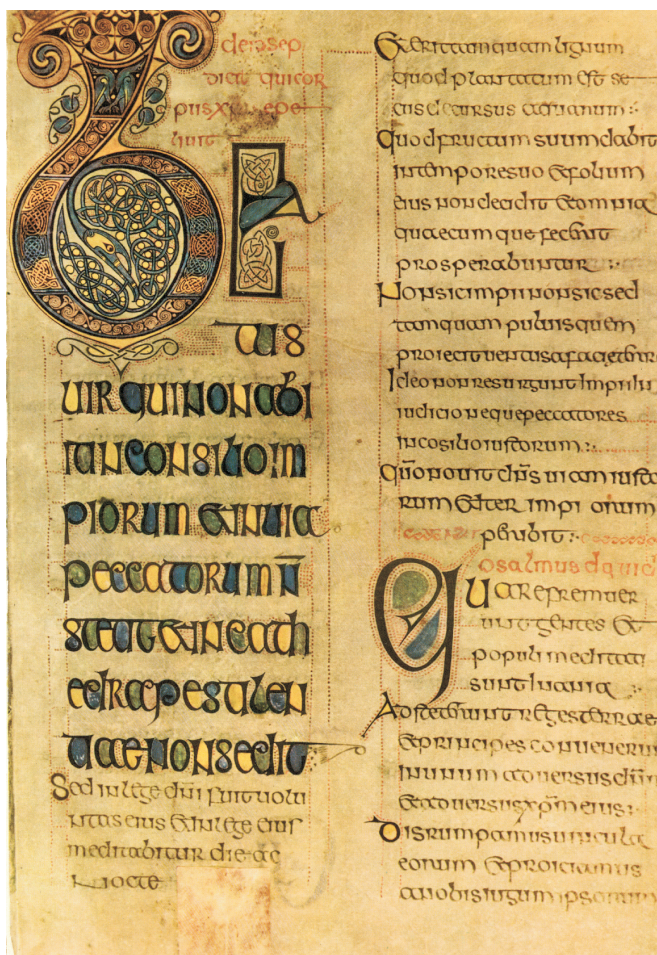 de ioseph
dicit qui cor
pus xpi sepe
liuit
BEA
TUS
UIR QUI NON ABI
IT IN CONSILIO IM
PIORUM & IN UIA
PECCATORUM N̄
STETIT & IN CATH
EDRA PESTILEN
TIAE NON SEDIT
Sed in lege dn̄i fuit uolu
ntas eius & in lege eius
meditabitur die ac
nocte
& erit tamquam lignum
quod plantatum est se
cus decursus aquarum :·
Quod fructum suum dabit
in tempore suo & folium
eius non decidit & omnia
quaecumque fecerit
prosperabuntur :·
Non sic impii non sic sed
tamquam puluis quem
proiecit uentus a facie terrae
Ideo non resurgunt impii in
iudicio neque peccatores
in cosilio iustorum :·
Qūo nouit dn̄s uiam iusto
rum & iter impiorum
peribit :·
psalmus dauid
QUARE fremuer
unt gentes &
populi meditati
sunt inania :·
Adsteterunt reges terrae
& principes conuenerunt
in unum aduersus dn̄m
& aduersus xp̄m eius :·
Disrumpamus uincula
eorum & proiciamus
a nobis iugum ipsorum